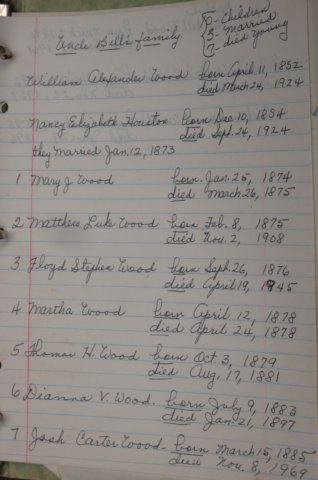 Uncle Bill's family
10 - children
3 - married
7 - died young
William Alexander Wood born April 11, 1852
died March 24, 1924
Nancy Elizabeth Houston born Dec. 10, 1854
died Sept. 24, 1924
they married Jan. 12, 1873
1 Mary J Wood born Jan. 25, 1874
died March 26, 1875
2 Matthew Luke Wood born Feb. 8, 1875
died Nov. 2, 1908
3 Floyd Stephen Wood born Sept. 26, 1876
died April 19, 1945
4 Martha Wood born April 12, 1878
died April 24, 1878
5 Thomas H. Wood born Oct 3, 1879
died Aug. 17, 1881
6 Dianna V. Wood. born July 9, 1883
died Jan. 21, 1897
7 Josh Carter Wood - born March 15, 1885
died Nov. 8, 1969